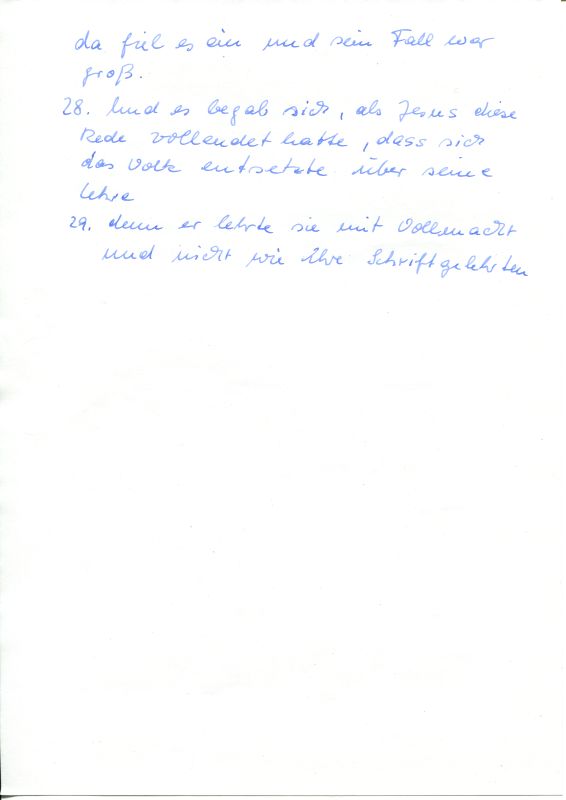 da fiel es ein und sein Fall war
groß.
28. Und es begab sich, als Jesus diese
Rede vollendet hatte, dass sich
das Volk entsetzte über seine
Lehre
29. denn er lehrte sie mit Vollmacht
und nicht wie ihre Schriftgelehrten